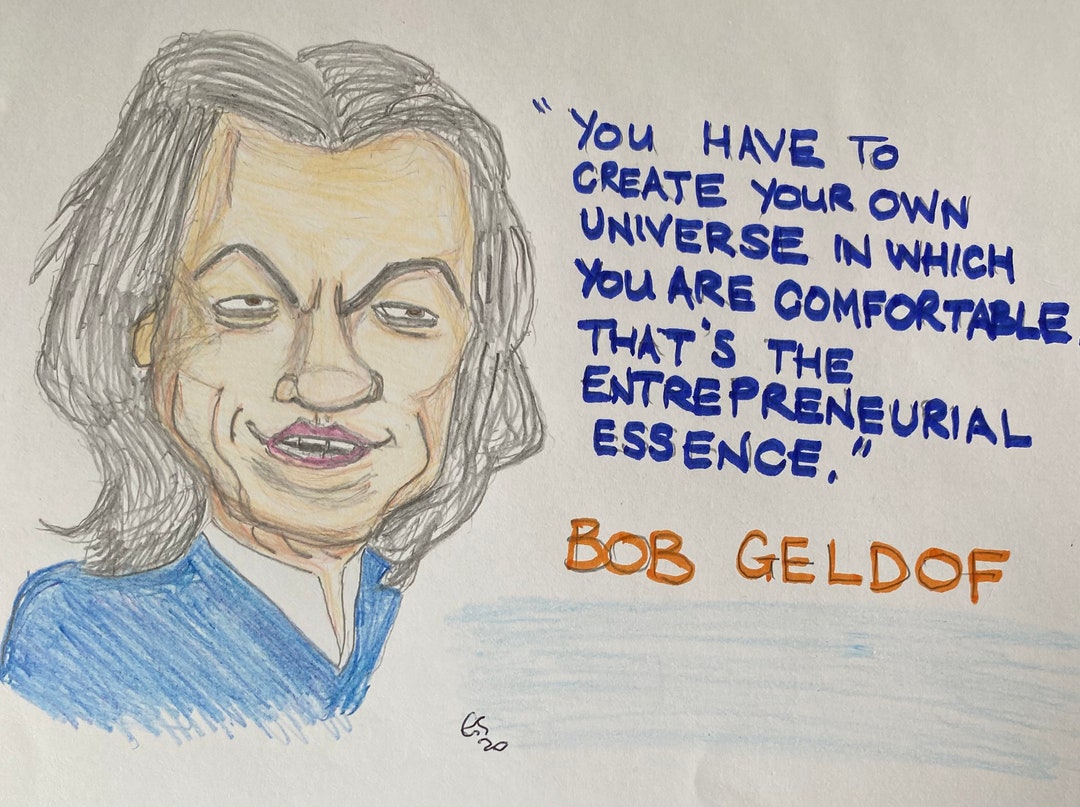 "YOU HAVE TO
CREATE YOUR OWN
UNIVERSE IN WHICH
YOU ARE COMFORTABLE.
THAT'S THE
ENTREPRENEURIAL
ESSENCE."
BOB GELDOF
20